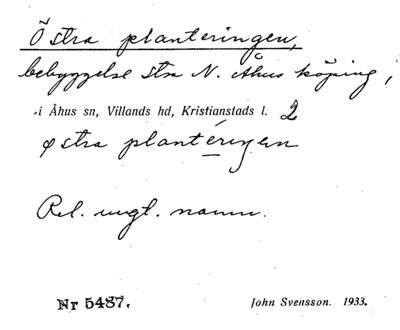 Östra planteringen,
bebyggelse stra N. Åhus köping,
i Åhus sn, Villands hd, Kristianstads l. 2
östra plantéringen
Rel. ungt. namn.
Nr 5487.
John Svensson. 1933.